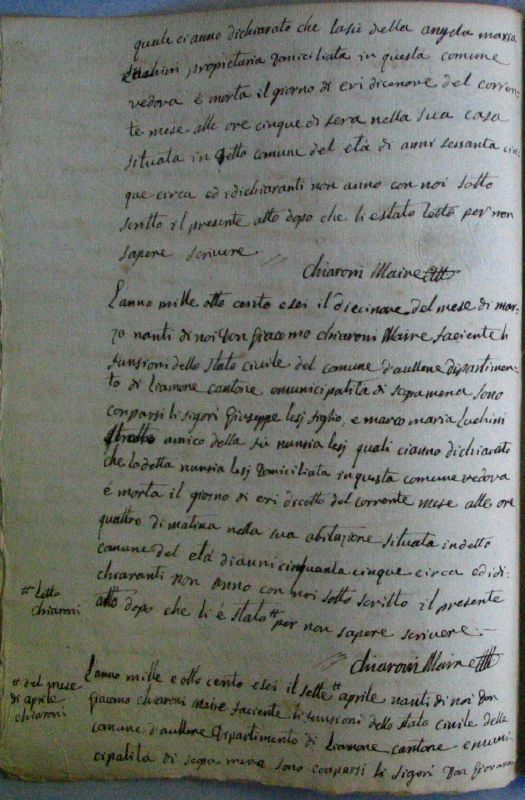 quale ci anno dichiarato che la siè della angela maria
Luchini proprietaria Domiciliata in questa comune
vedova é morta il giorno di eri dicanove del corren
te mese alle ore cinque di sera nella sua casa
situata in detto comune del età di anni sessanta cin
que circa ed i dichiaranti non anno con noi sotto
scritto il presente atto dopo che li é stato letto per non
sapere scrivere
Chiaroni Maire
L'anno mille otto cento e sei il diecinove del mese di mar
zo nanti di noi Don Giacomo chiaroni Maire faciente li
funsioni dello stato civile del comune d'aullene dipartimen
to di liamone cantone e municipalita di scopamena sono
comparsi li sigori Giuseppe lesj figlio, e marco maria Luchini
amico della siè nunsia lesj quali ci anno dichiarato
che la detta nunsia lesj Domiciliata in questa comune vedova
é morta il giorno di eri dicotto del corrente mese alle ore
quattro di matina nella sua abitazione situata in detto
comune del età di anni cinquanta cinque circa ed i di
chiaranti non anno con noi sotto scritto il presente
# letto
chiaroni
atto dopo che li é stato # per non sapere scrivere
Chiaroni Maire
# del mese
di aprile
chiaroni
L'anno mille e otto cento e sei il sette # aprile nanti di noi Don
Giacomo chiaroni Maire faciente li funsioni dello stato civile della
comune d'aullene Dipartimento di liamone cantone e muni
cipalita di scopa mena sono comparsi li sigori Don Giovanni